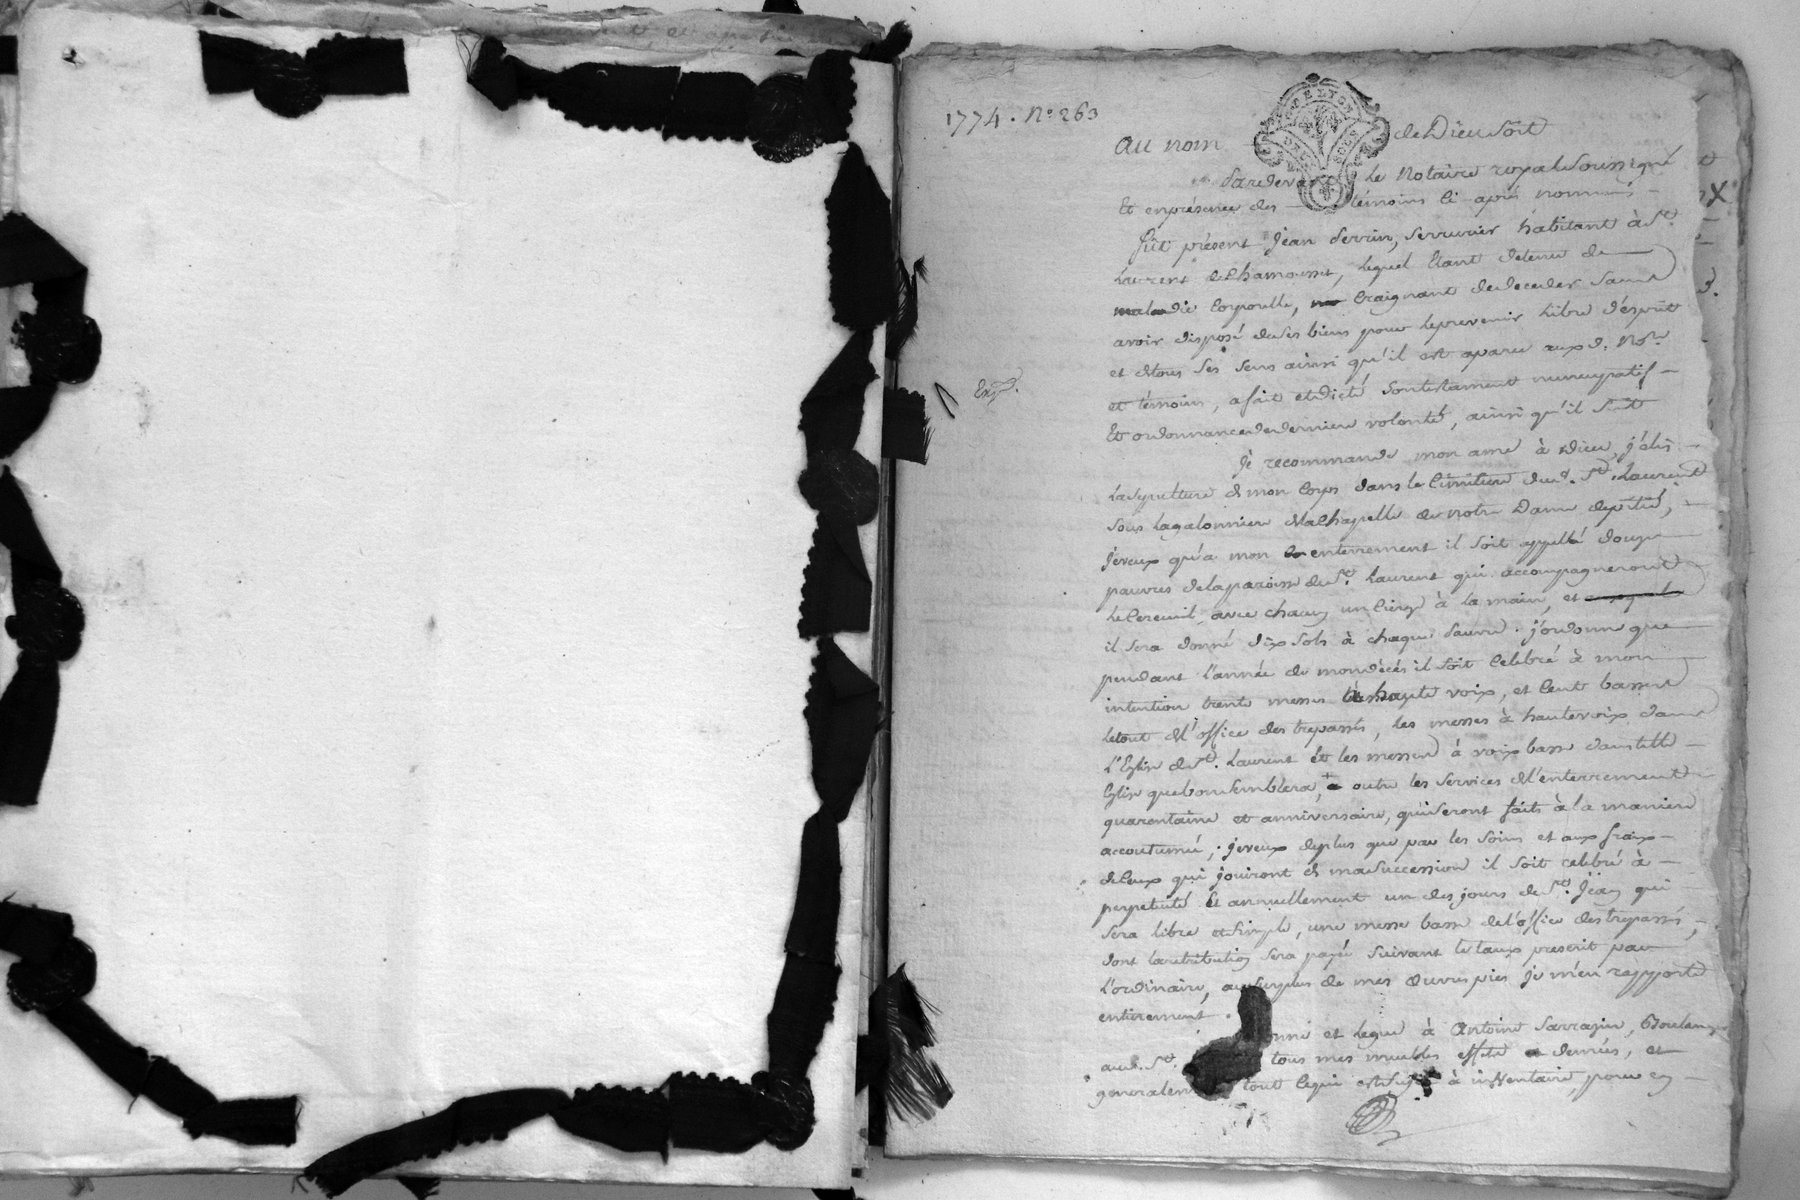 1774. N° 263
DE LYON
au nom de Dieu soit
Pardevant le Notaire royal soussigné
Et en présence des témoins ci après nommés,
fût présent Jean Perrin, serrurier habitant à St.
Laurent de Chamousset, lequel Etant detenu de
maladie Corporelle, Craignant de deceder sans
avoir disposé de ses biens pour le prevenir Libre d'esprit
et de tous ses sens ainsi qu'il est aparu aux d. Nore.
Exp.
et témoins, a fait et dicté son testament nuncupatif
Et ordonnance de derniere volonté, ainsi qu'il suit
Je recommande mon ame à Dieu, j'élis
La sepulture de mon Corps dans le Cimitiere dud. St. Laurent
sous la galonniere de la Chapelle de notre Dame de pitié,
je veux qu'a mon enterrement il soit appellé douze
pauvres de la paroisse du St. Laurent qui accompagneront
Le Cercueil, avec chacun un Cierge à la main, et
il sera donné dix sols à chaque Pauvre. j'ordonne que
pendant l'année de mon décès il soit Celebré à mon
intention trente messes à haute voix, et Cent basses
le tout de l'office des trepassés, les messes à haute voix dans
L'Eglise du St. Laurent et les messes à voix basse dans telle
Eglise que bon semblera, + outre les services de l'enterrement
quarantaine et anniversaire, qui seront faits à la maniere
accoutumée; je veux de plus que par les soins et aux fraix
de Ceux qui jouiront de ma succession il soit celebré à
perpetuité Et annuellement un des jours de St. Jean qui
sera libre et simple, une messe basse de l'office des trepassés,
dont la retribution sera payée suivant le taux prescrit par
L'ordinaire, au surplus de mes Œuvres pies je m'en rapporte
entierement.
donne et legue à Antoine Sarrazin, Boulanger
aud. St. tous mes meubles effets denrées, et
generalement tout Ce qui est sujet à inventaire, pour en